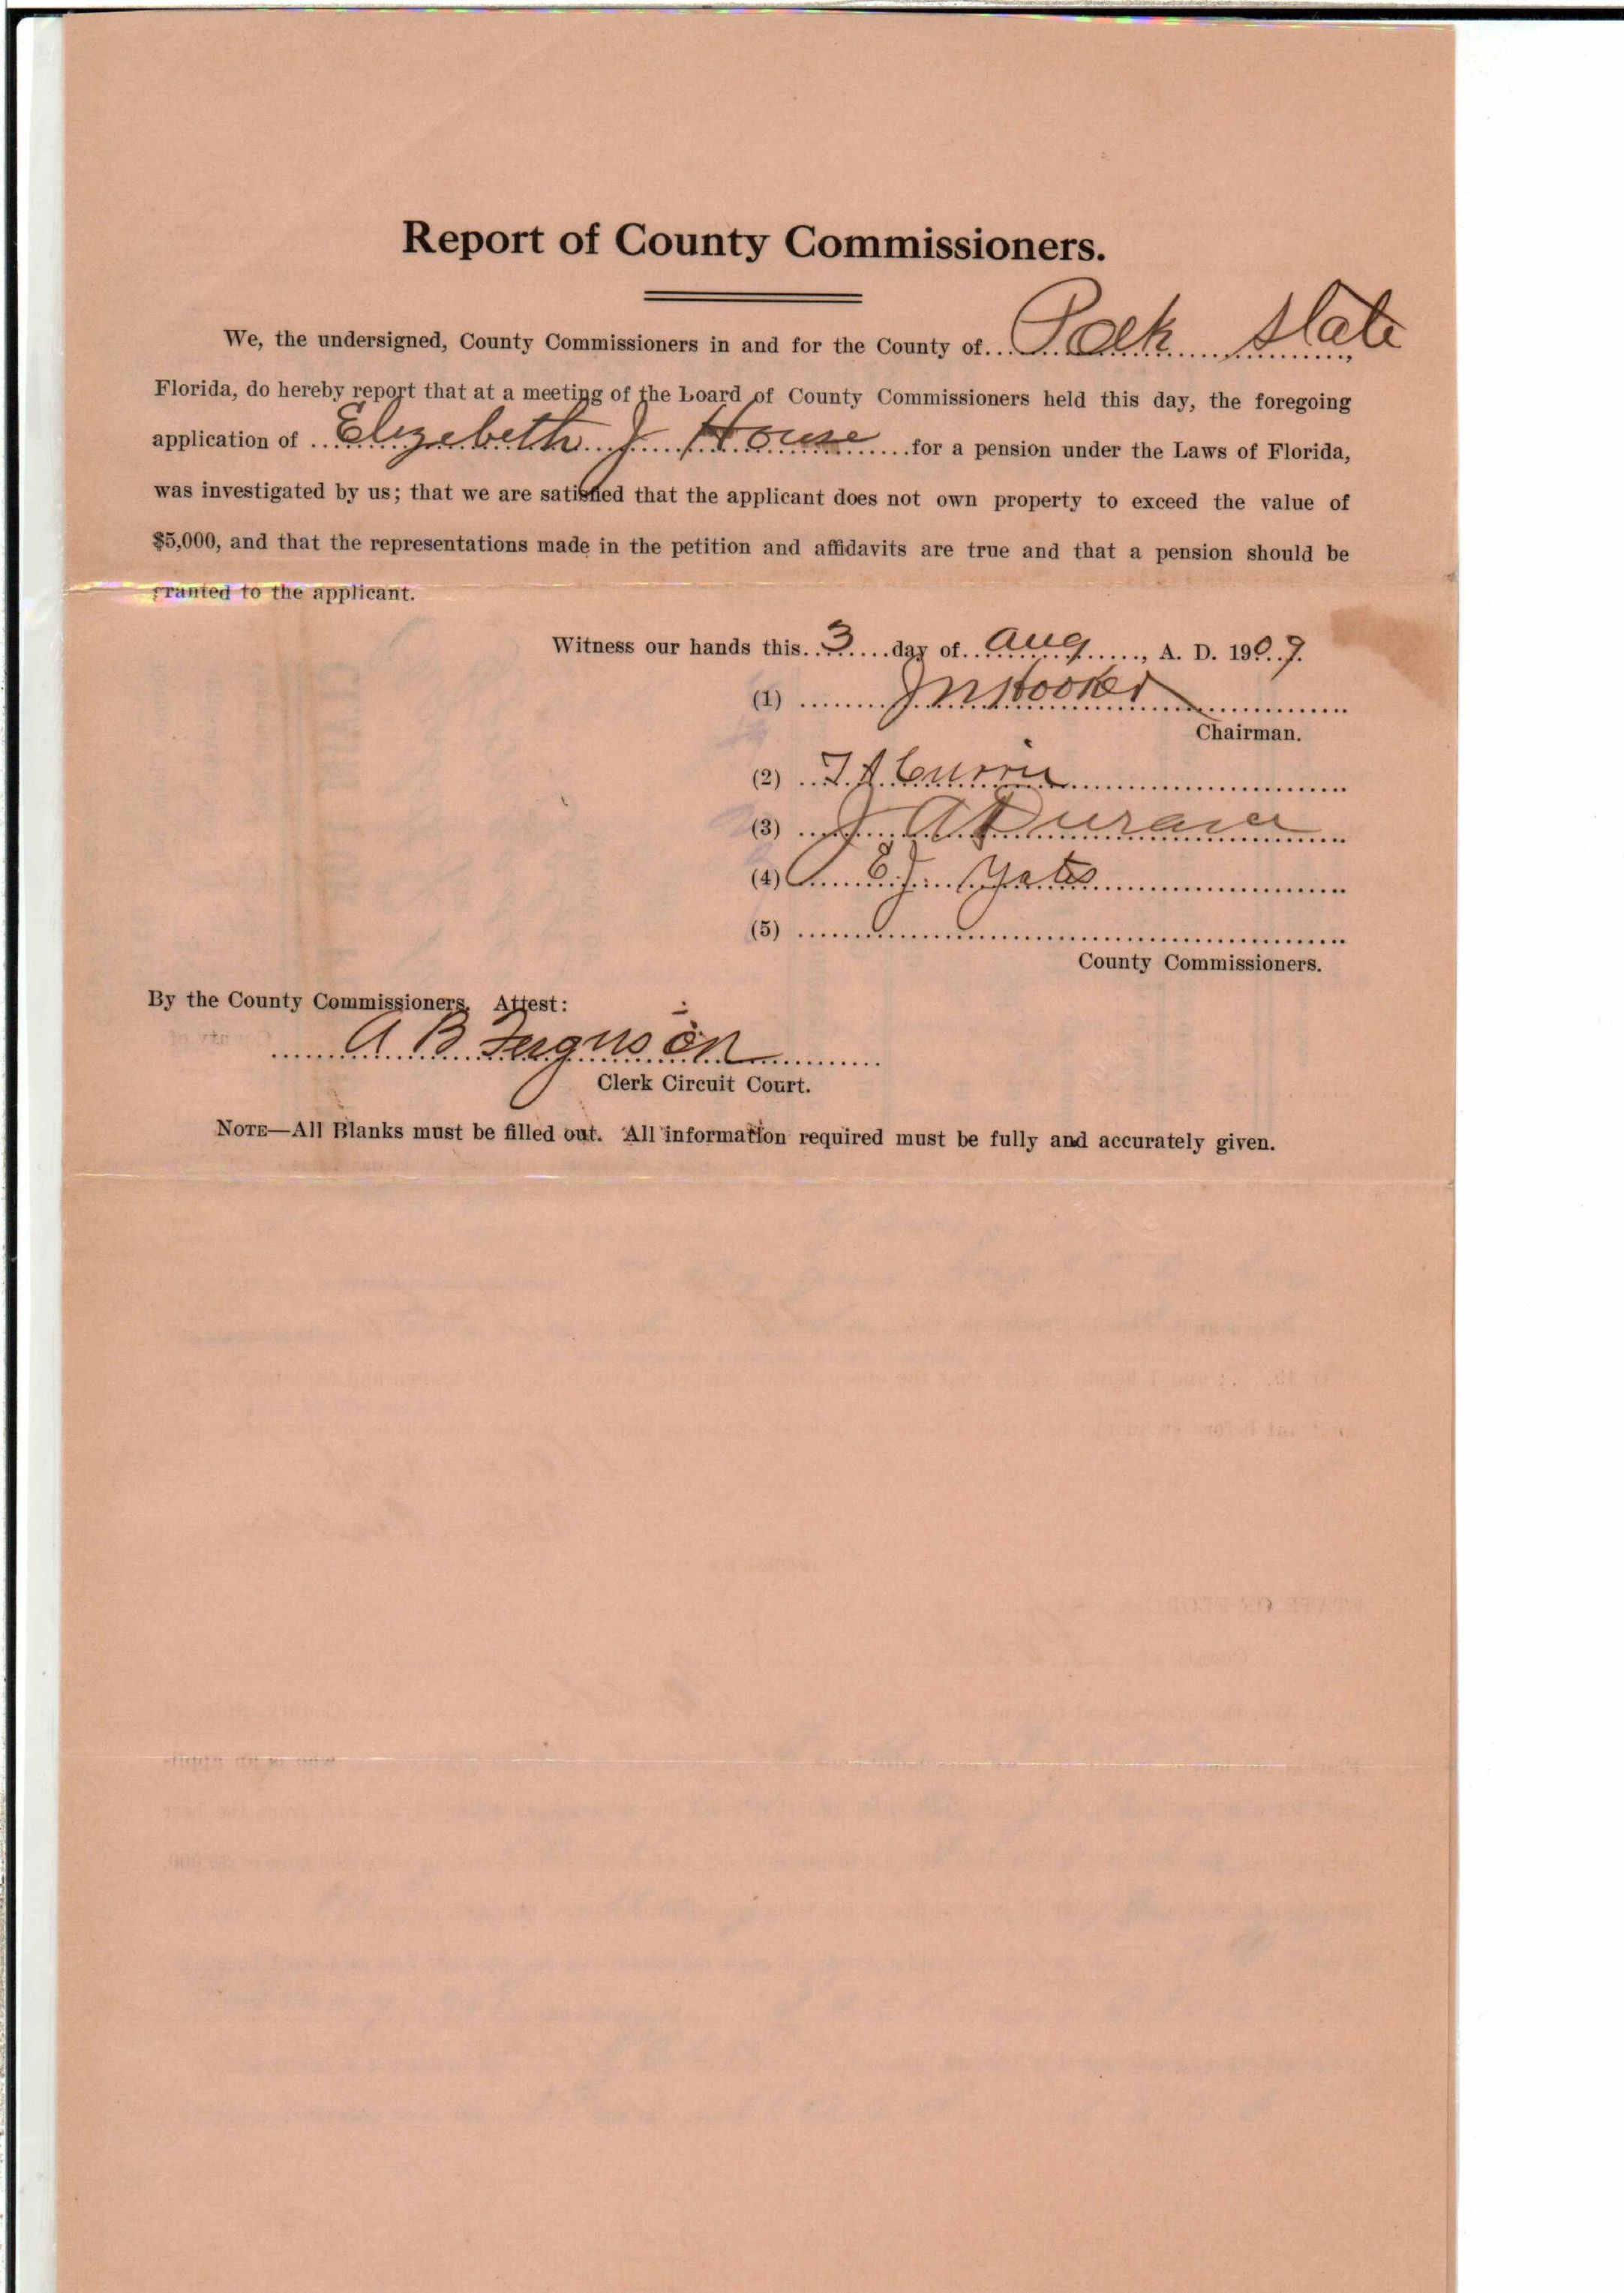 Report of County Commissioners.
We, the undersigned, County Commissioners in and for the County of Polk State
Florida, do hereby report that at a meeting of the Loard of County Commissioners held this day, the foregoing
application of Elizebeth J House for a pension under the Laws of Florida,
was investigated by us; that we are satisfied that the applicant does not own property to exceed the value of
$5,000, and that the representations made in the petition and affidavits are true and that a pension should be
granted to the applicant.
Witness our hands this 3 day of Aug, A. D. 1909.
(1) J N Hooker
Chairman.
(2) T A Currie
(3) J A
(4) E J Yates
(5)
County Commissioners.
By the County Commissioners, Attest:
A B Ferguson
Clerk Circuit Court.
NOTE—All Blanks must be filled out. All information required must be fully and accurately given.